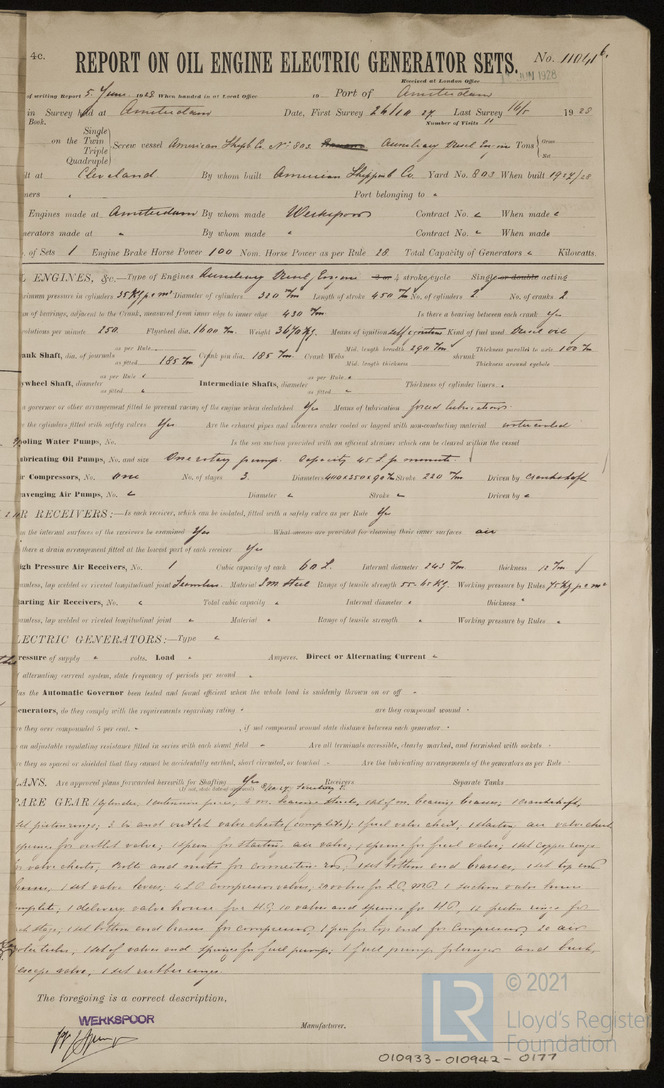 4c.
REPORT ON OIL ENGINE ELECTRIC GENERATOR SETS. No. 11041
JUN 1928
Received at London Office
of writing Report 5 June 1928 When handed in at Local Office 19 Port of Amsterdam
in Survey held at Amsterdam Date, First Survey 26/10 27 Last Survey 16/5 1928
Book. Number of Visits 11
on the Single Twin Triple Quadruple Screw vessel American Shipb. Co. No. 803 Auxiliary Diesel Engine Tons Gross Net
lt at Cleveland By whom built American Shipb. Co. Yard No. 803 When built 1927/28
ners Port belonging to
Engines made at Amsterdam By whom made Werkspoor Contract No. When made
nerators made at By whom made Contract No. When made
. of Sets 1 Engine Brake Horse Power 100 Nom. Horse Power as per Rule 28 Total Capacity of Generators Kilowatts.
L ENGINES, &c.—Type of Engines Auxiliary Diesel Engine 2 or 4 stroke cycle Single or double acting
aximum pressure in cylinders 35 Kg p c m² Diameter of cylinders 320 Length of stroke 450 No. of cylinders 2 No. of cranks 2
n of bearings, adjacent to the Crank, measured from inner edge to inner edge 430 Is there a bearing between each crank Yes
volutions per minute 250 Flywheel dia. 1600 Weight 3670 Kg. Means of ignition self ignition Kind of fuel used Diesel oil
ank Shaft, dia. of journals as per Rule as fitted 185 Crank pin dia. 185 Crank Webs Mid. length breadth 290 Mid. length thickness shrunk Thickness parallel to axis 100 Thickness around eyehole
ywheel Shaft, diameter as per Rule as fitted Intermediate Shafts, diameter as per Rule as fitted Thickness of cylinder liners
a governor or other arrangement fitted to prevent racing of the engine when declutched Yes Means of lubrication forced lubrication
re the cylinders fitted with safety valves Yes Are the exhaust pipes and silencers water cooled or lagged with non-conducting material water cooled
ooling Water Pumps, No. Is the sea suction provided with an efficient strainer which can be cleared within the vessel
ubricating Oil Pumps, No. and size One rotary pump. Capacity 45 L p minute.
ir Compressors, No. one No. of stages 3. Diameters 400x350x90 Stroke 220 Driven by crankshaft
avenging Air Pumps, No. Diameter Stroke Driven by
R RECEIVERS:—Is each receiver, which can be isolated, fitted with a safety valve as per Rule Yes
n the internal surfaces of the receivers be examined Yes What means are provided for cleaning their inner surfaces
there a drain arrangement fitted at the lowest part of each receiver Yes
igh Pressure Air Receivers, No. 1 Cubic capacity of each 60 L. Internal diameter 243 thickness 12
eamless, lap welded or riveted longitudinal joint Seamless Material S.M. Steel Range of tensile strength 55-65 Kg. Working pressure by Rules 75 Kg p c m²
tarting Air Receivers, No. Total cubic capacity Internal diameter thickness
eamless, lap welded or riveted longitudinal joint Material Range of tensile strength Working pressure by Rules
LECTRIC GENERATORS:—Type
ressure of supply volts. Load Amperes. Direct or Alternating Current
alternating current system, state frequency of periods per second
as the Automatic Governor been tested and found efficient when the whole load is suddenly thrown on or off
enerators, do they comply with the requirements regarding rating are they compound wound
re they over compounded 5 per cent. , if not compound wound state distance between each generator
an adjustable regulating resistance fitted in series with each shunt field Are all terminals accessible, clearly marked, and furnished with sockets
re they so spaced or shielded that they cannot be accidentally earthed, short circuited, or touched Are the lubricating arrangements of the generators as per Rule
LANS. Are approved plans forwarded herewith for Shafting Yes Receivers Separate Tanks
(If not, date of approval)
PARE GEAR 1 cylinder, 4 m. bearing studs, 1 set of m. bearing brasses, 1 crankshaft,
set piston rings, 3 in and outlet valve chests (complete); 1 fuel valve chest, 1 starting air valve chest
springs for outlet valve, 1 spring for starting air valve, 1 spring for fuel valve; 1 set copper rings
for valve chests, Bolts and nuts for connecting rod, 1 set bottom end brasses, 1 set top end
brasses, 1 set valve levers, 4 L.P. compressor valves, 20 valves for L.P. M.P. 1 suction valve house
complete, 1 delivery valve house for H.P. 10 valves and springs for H.P., 12 piston rings for
stage, 1 set bottom end brasses for compressor, 1 pin for top end for compressor, 20 air
cooler tubes, 1 set of valves and springs for fuel pump; 1 fuel pump plunger and bush,
1 set rubber rings
The foregoing is a correct description,
WERKSPOOR
Manufacturer.
© 2021
LR
Lloyd's Register
Foundation
010933-010942-0177